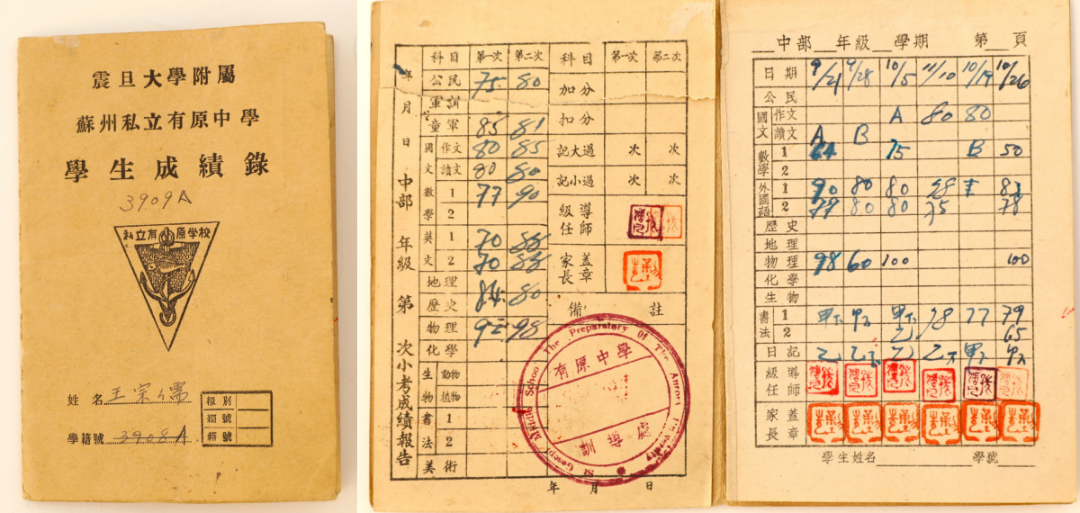 震旦大學附屬
蘇州私立有原中學
學生成績錄
3909A
私立有原学校
姓名 王宗儒
級別
班號
學籍號 3908A
年 月 日 中部 年級 第 次小考成績報告
科目 第一次 第二次 科目 第一次 第二次
公民 75 80 加分
軍訓
童軍 85 81 扣分
國文 作文 80 85 記大過 次 次
讀文 80 80 記小過 次 次
數學 1 77 90
2 級任導師
英文 1 70
2 70 家長蓋章
地理 80 備註
歷史
物理 92 98
化學
生物 動物
植物
書法 1
2
美術
有原中學
The Preparatory Of The Aurora
年 月 日
中部 年級 學期 第 頁
日期 9/21 9/28 10/5 10/19 10/26
公民
國文 作文 A 80 80
讀文 A B
數學 1 75 B 50
2
外國語 1 90 80 80
2 80 80 75 78
歷史
地理
物理 98 60 100 100
化學
生物
書法 1 78 77 79
2 65
日記
級任導師
家長蓋章
學生姓名 學號